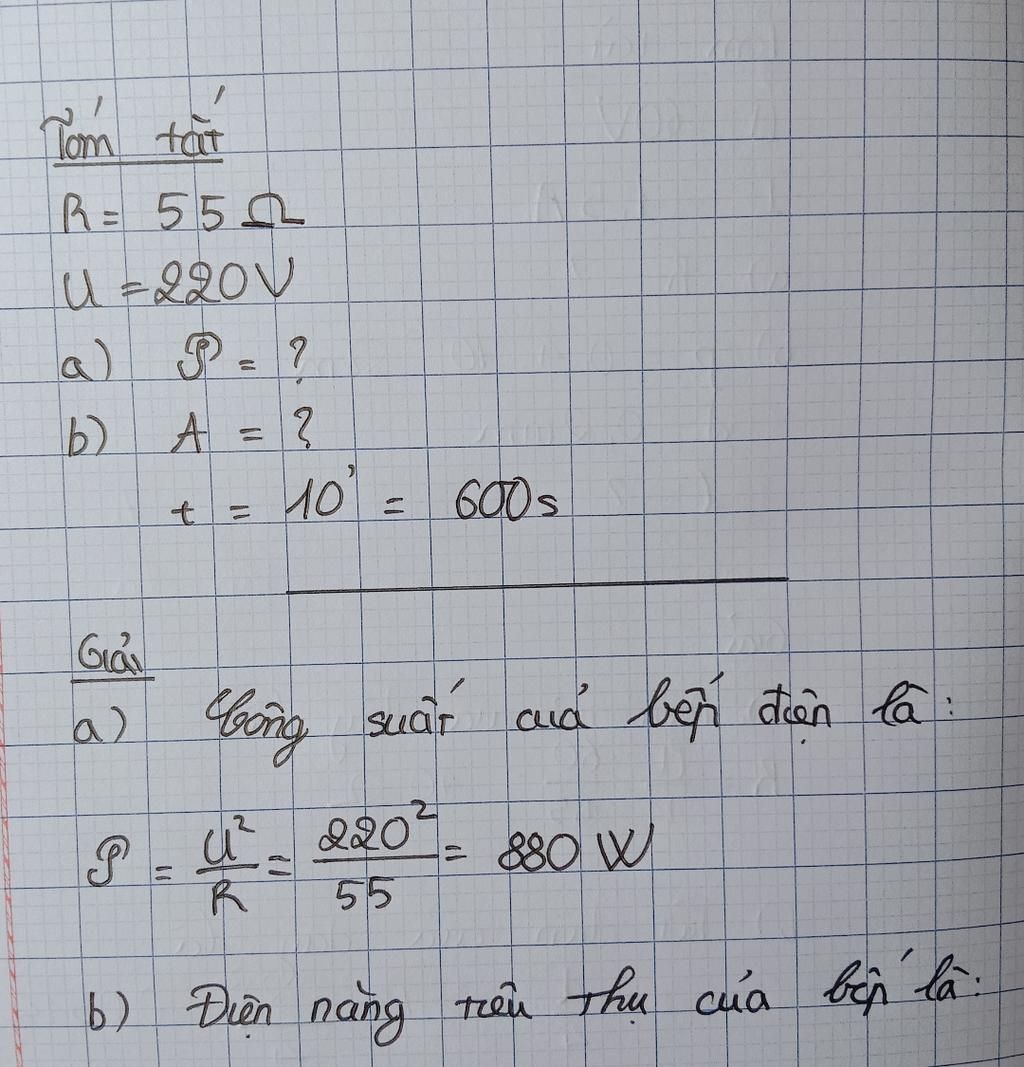 Tóm tắt
R = 55 Ω
U = 220V
a) 𝒫 = ?
b) A = ?
t = 10' = 600s
Giải
a) Công suất của bếp điện là:
𝒫 = U²/R = 220²/55 = 880 W
b) Điện năng tiêu thụ của bếp là: